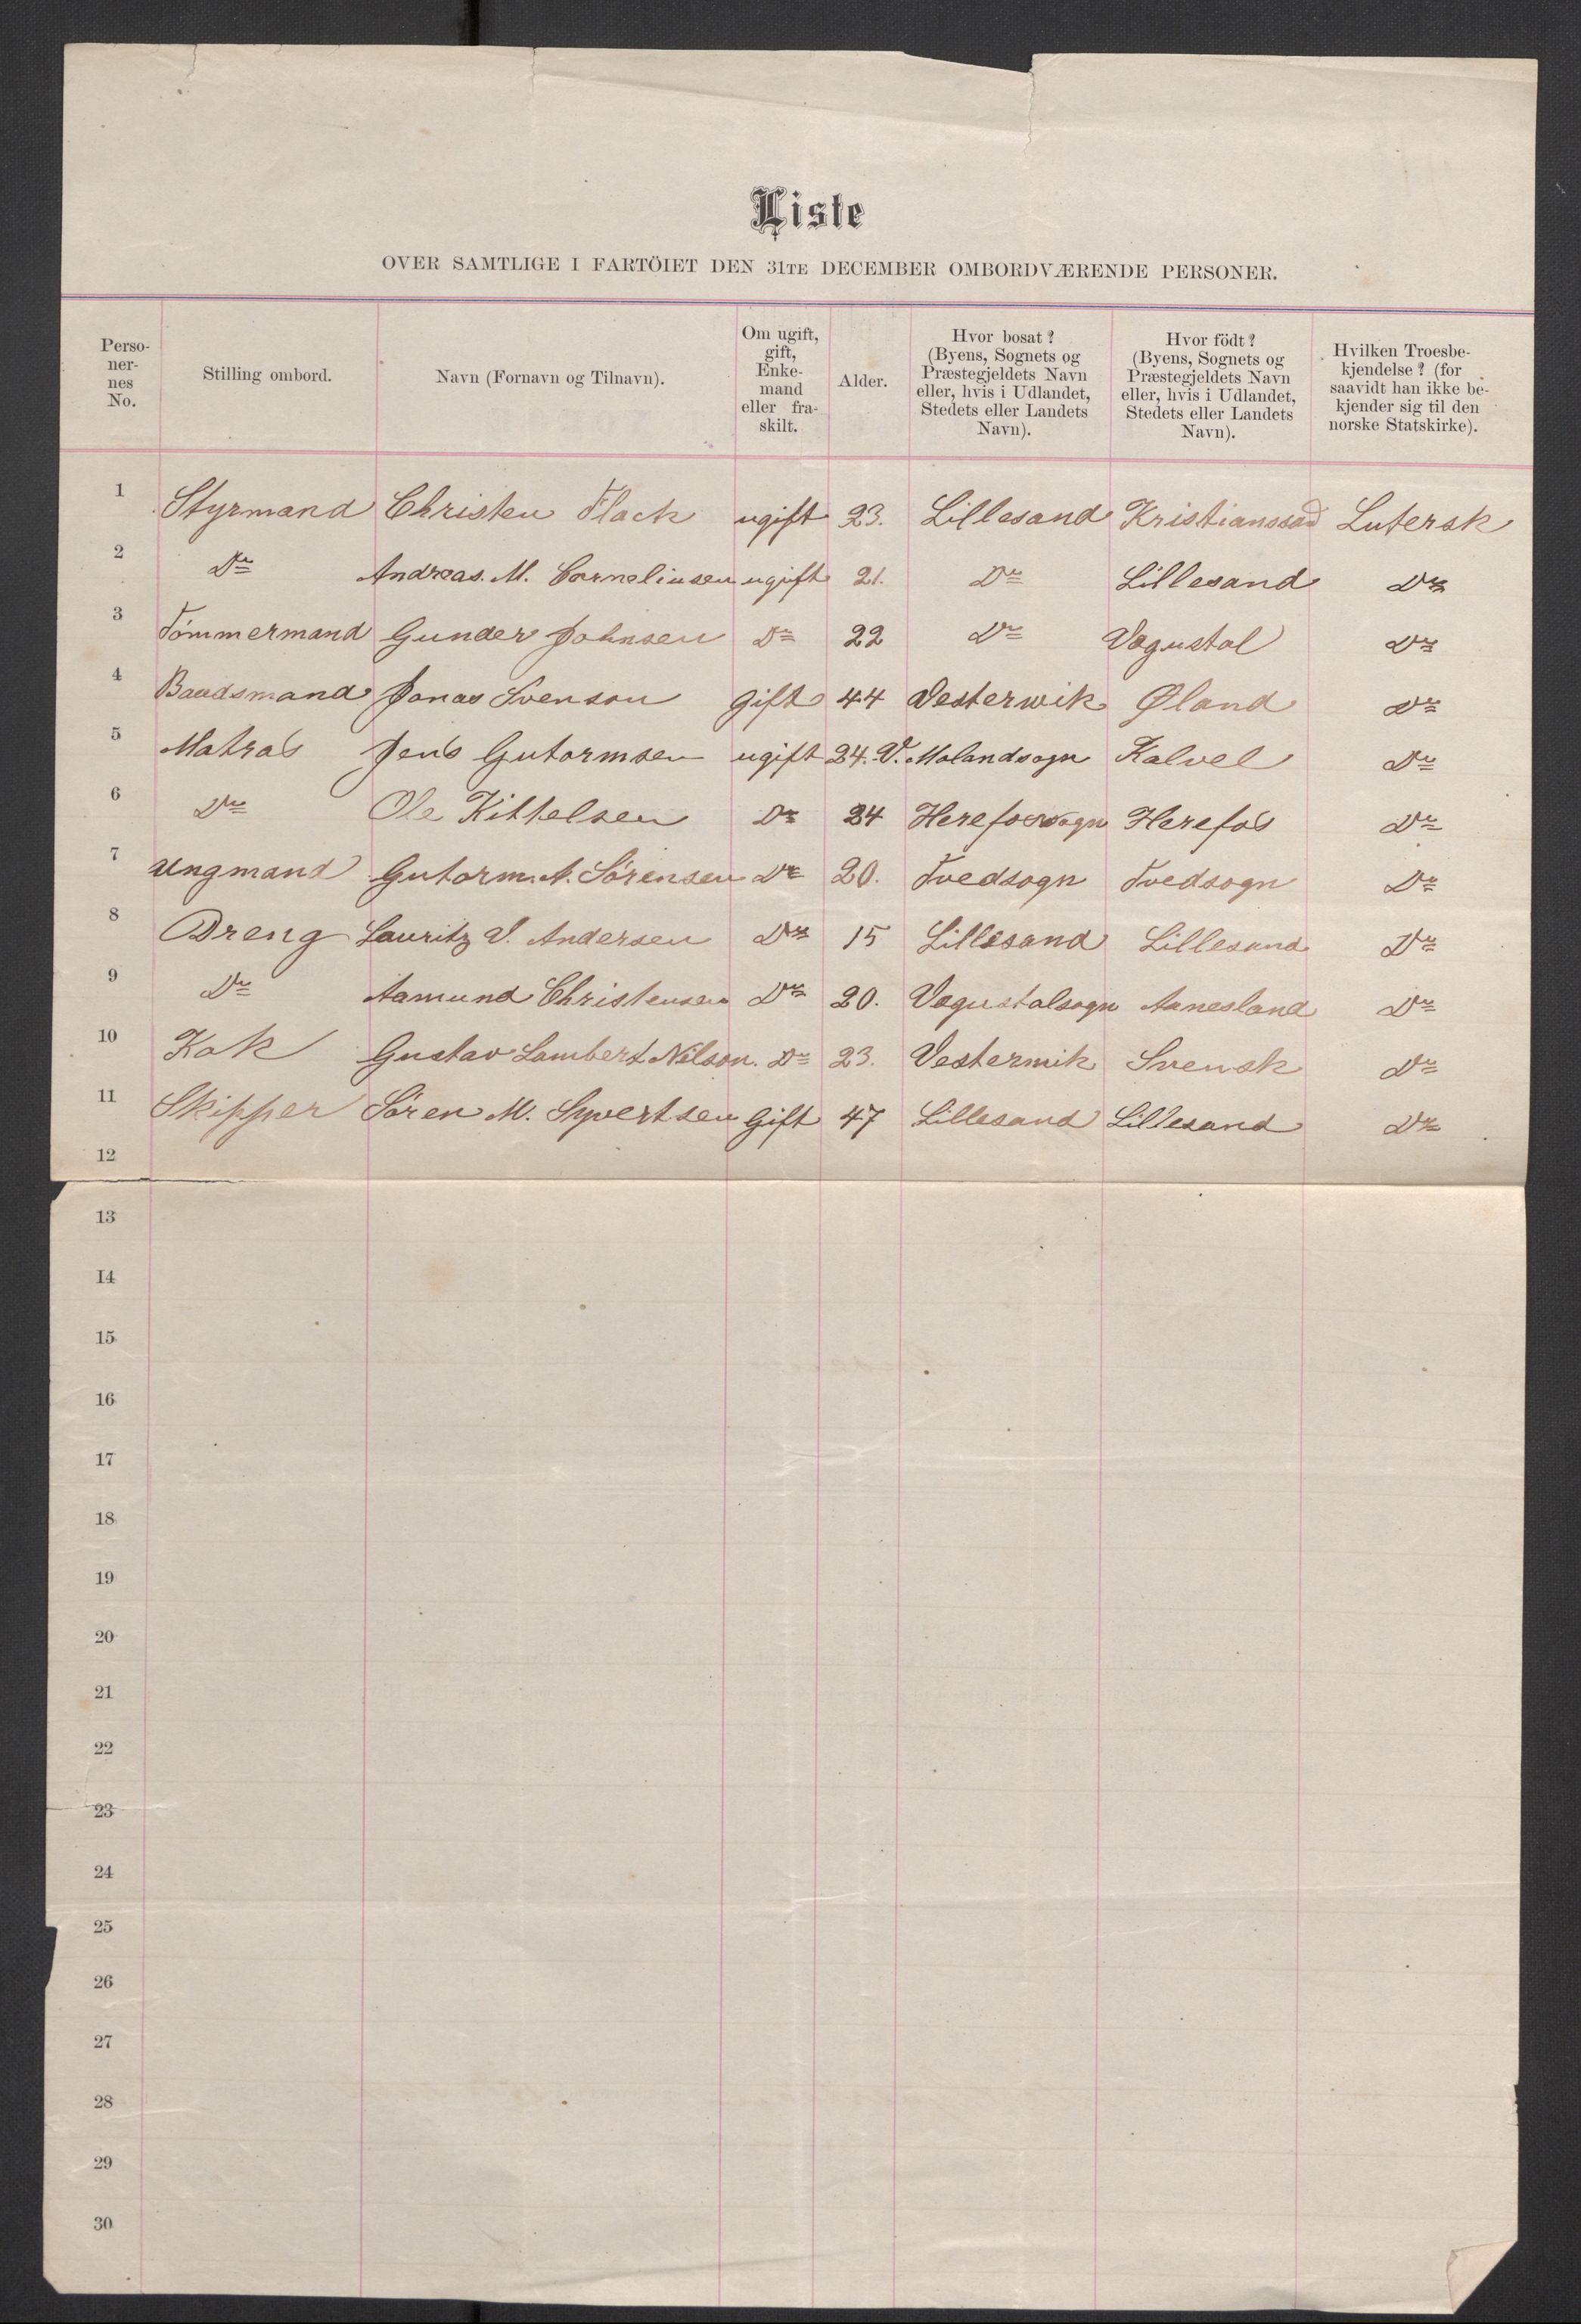 Liste
OVER SAMTLIGE I FARTÖIET DEN 31TE DECEMBER OMBORDVÆRENDE PERSONER.
Perso-
ner-
nes
No.
Stilling ombord.
Navn (Fornavn og Tilnavn).
Om ugift,
gift,
Enke-
mand
eller fra-
skilt.
Alder.
Hvor bosat?
(Byens, Sognets og
Præstegjeldets Navn
eller, hvis i Udlandet,
Stedets eller Landets
Navn).
Hvor födt?
(Byens, Sognets og
Præstegjeldets Navn
eller, hvis i Udlandet,
Stedets eller Landets
Navn).
Hvilken Troesbe-
kjendelse? (for
saavidt han ikke be-
kjender sig til den
norske Statskirke).
1 Styrmand Christen Flack ugift 23. Lillesand Kristianssad Lutersk
2 Do Andreas. M. Corneliusen ugift 21. Do Lillesand Do
3 Tömmermand Gunder Johnsen Do 22 Do Vagustal Do
4 Baadsmand Jonas Svenson gift 44 Vesterwik Øland Do
5 Matros Jens Gutormsen ugift 24. V. Molandsogn Kalvel Do
6 Do Ole Kittelsen Do 24 Herefossogn Herefos Do
7 Ungmand Gutorm. A. Sörensen Do 20. Tvedsogn Tvedsogn Do
8 Dreng Lauritz V. Andersen Do 15 Lillesand Lillesand Do
9 Do Aamund Christensen Do 20. Vagustalsogn Aanesland Do
10 Kok Gustav Lambert Nilson. Do 23. Vesterwik Svensk Do
11 Skipper Sören M. Syvertsen Gift 47 Lillesand Lillesand Do
12
13
14
15
16
17
18
19
20
21
22
23
24
25
26
27
28
29
30